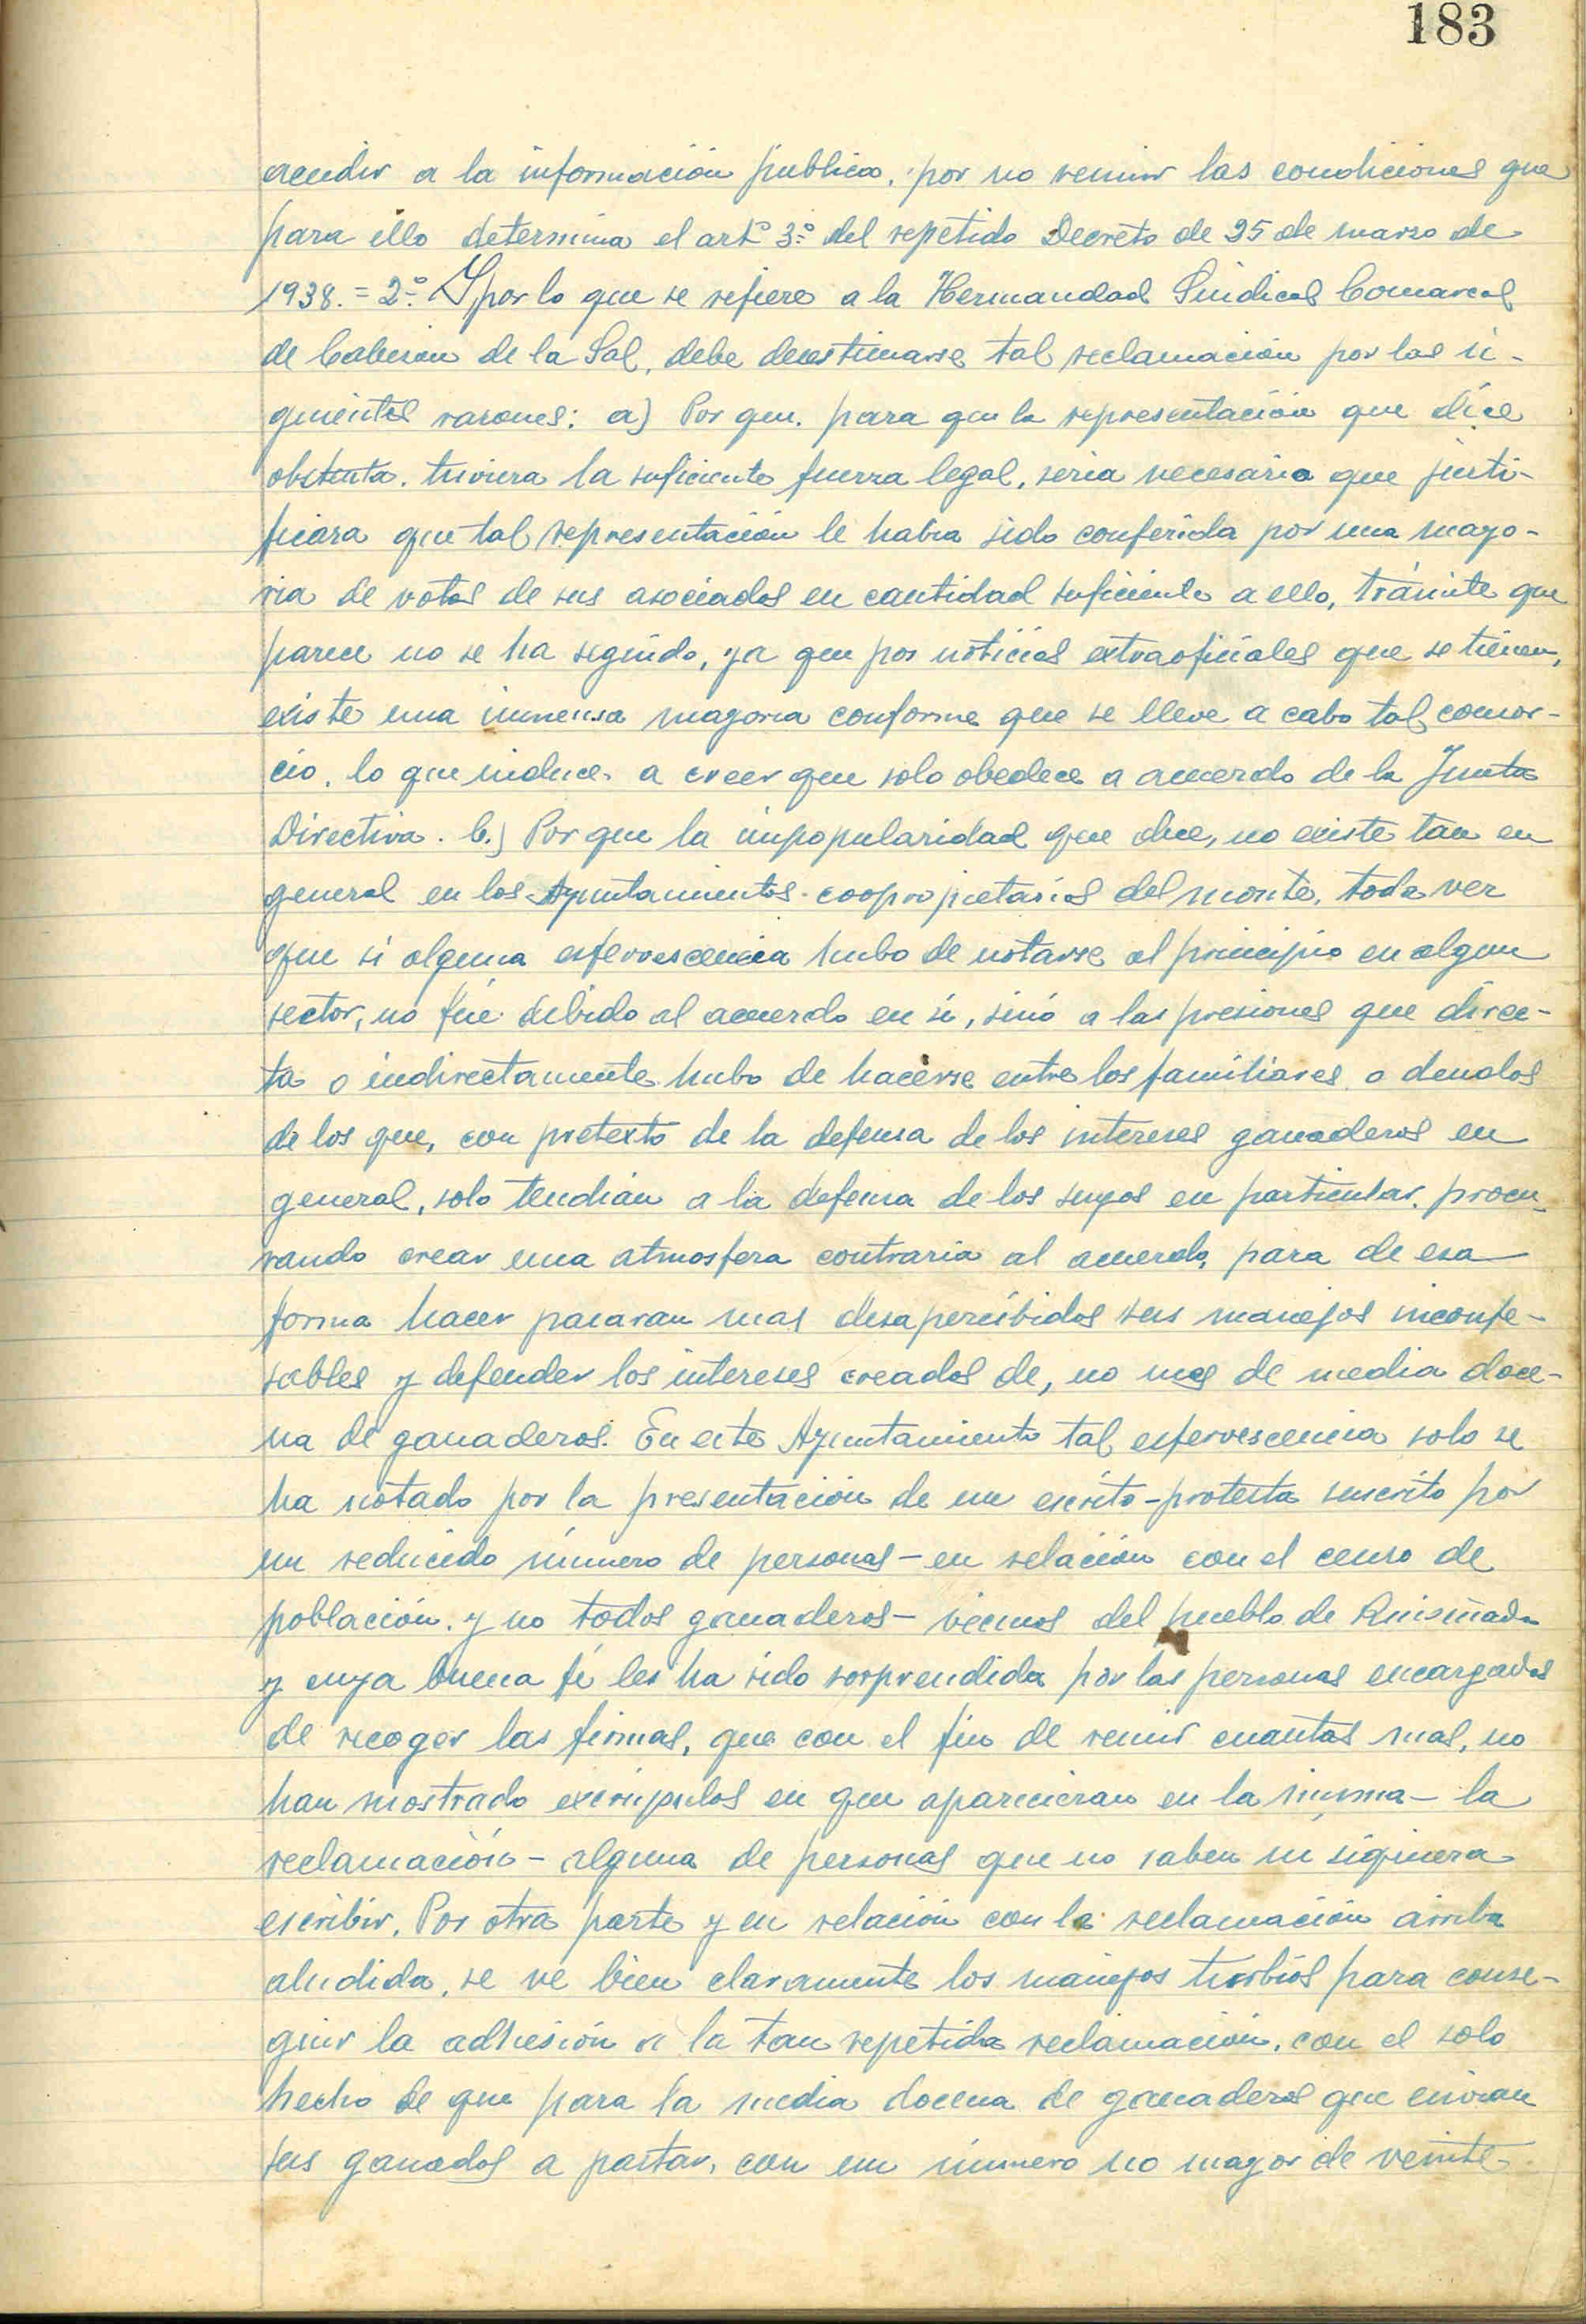 183
acudir a la información publica, por no reunir las condiciones que
para ello determina el artº 3º del repetido Decreto de 25 de marzo de
1938. = 2º Y por lo que se refiere a la Hermandad Sindical Comarcal
de Cabezon de la Sal, debe desestimarse tal reclamación por las si-
guientes razones: a) Por que. para que la representación que dice
obstenta. tuviera la suficiente fuerza legal, seria necesario que justi-
ficara que tal representación le habia sido conferida por una mayo-
ria de votos de sus asociados en cantidad suficiente a ello, trámite que
parece no se ha seguido, ya que por noticias extraoficiales que se tienen,
existe una inmensa mayoria conforme que se lleve a cabo tal consor-
cio, lo que induce a creer que solo obedece a acuerdo de la Junta
Directiva. b.) Por que la impopularidad que dice, no existe tan en
general en los Ayuntamientos coopropietarios del monte, toda vez
que si alguna esfervescencia hubo de notarse al principio en algun
sector, no fué debido al acuerdo en si, sinó a las presiones que direc-
ta o indirectamente hubo de hacerse entre los familiares o deudos
de los que, con pretexto de la defensa de los intereses ganaderos en
general, solo tendian a la defensa de los suyos en particular. procu-
rando crear una atmosfera contraria al acuerdo, para de esa
forma hacer pasaran mas desapercibidos sus manejos inconfe-
sables y defender los intereses creados de, no mas de media doce-
na de ganaderos. En este Ayuntamiento tal esfervescencia solo se
ha notado por la presentación de un escrito-protesta suscrito por
un reducido número de personas - en relación con el censo de
población. y no todos ganaderos - vecinos del pueblo de Ruiseñada
y cuya buena fé les ha sido sorprendida por las personas encargadas
de recoger las firmas, que con el fin de reunir cuantas mas, no
han mostrado escrúpulos en que aparecieran en la misma - la
reclamación - alguna de personas que no saben ni siquiera
escribir. Por otra parte y en relación con la reclamación arriba
aludida, se vé bien claramente los manejos turbios para conse-
guir la adhesión a la tan repetida reclamación. con el solo
hecho de que para la media docena de ganaderos que envian
sus ganados a pastar, con un número no mayor de veinte